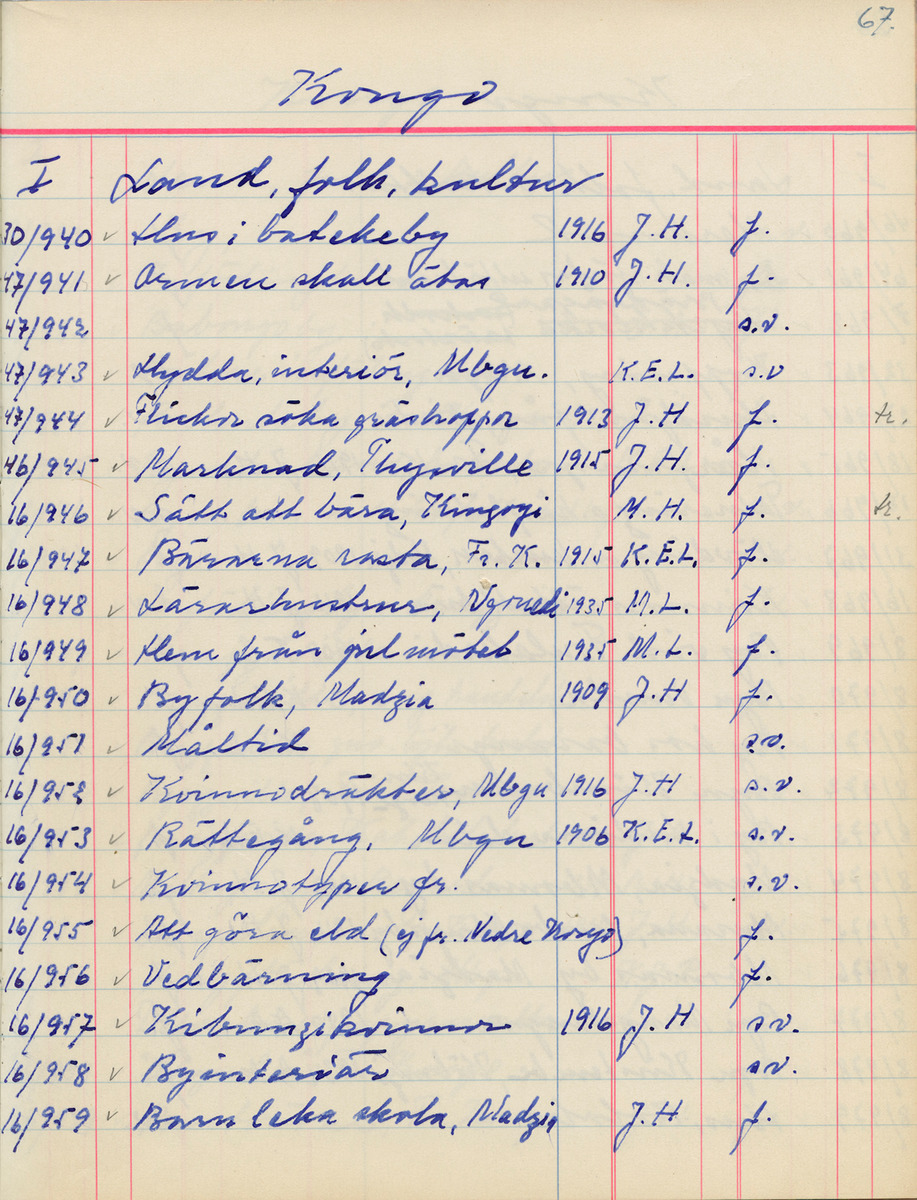 67.
Kongo
I Land, folk, kultur
30/940 ✓ Hus i batekeby 1916 J.H. f.
47/941 ✓ Ormen skall ätas 1910 J.H. f.
47/942 s.v.
47/943 ✓ Hydda, interiör, Mbgu. K.E.L. s.v
47/944 ✓ Flickor söka gräshoppor 1913 J.H f. tr.
46/945 ✓ Marknad, Thysville 1915 J.H. f.
16/946 ✓ Sätt att bära, Kingoyi M.H. f. tr.
16/947 ✓ Bärarna rasta, Fr. K. 1915 K.E.L. f.
16/948 ✓ Lärarhustrur, Ngouedi 1935 M.L. f.
16/949 ✓ Hem från julmötet 1935 M.L. f.
16/950 ✓ Byfolk, Madzia 1909 J.H f.
16/951 ✓ Måltid s.v.
16/952 ✓ Kvinnodräkter, Mbgu 1916 J.H s.v.
16/953 ✓ Rättegång, Mbgu 1906 K.E.L. s.v.
16/954 ✓ Kvinnotyper fr. s.v.
16/955 ✓ Att göra eld (ej fr. Nedre Kongo) f.
16/956 ✓ Vedbärning f.
16/957 ✓ Kibunzikvinnor 1916 J.H s.v.
16/958 ✓ Byinteriör s.v.
16/959 ✓ Barn leka skola, Madzia J.H f.